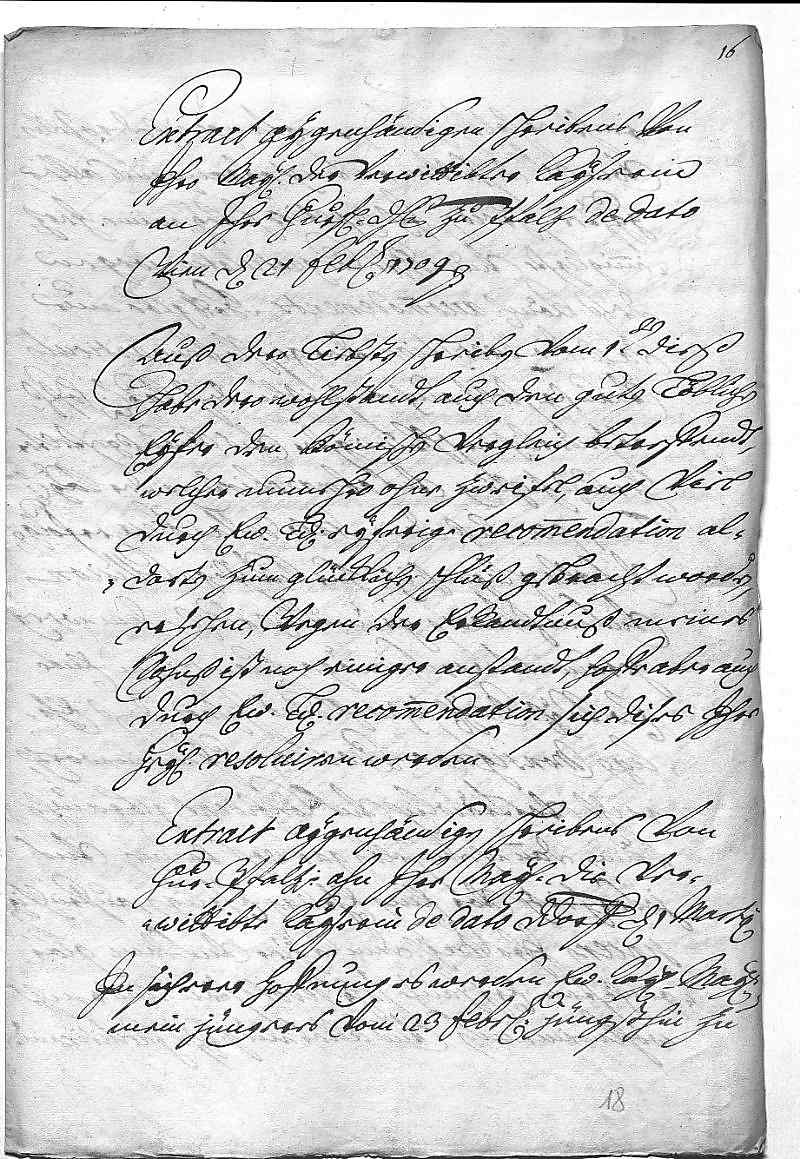 16
Extract aÿgenhändigen schreibens Von
Ihro Maÿ. der verwittibten Kaÿserin
an Ihro Churfl. dhl. zu Pfaltz de dato
Wien d. 21 feb. 1709
Auß dero Liebsten schreiben vom 1. dieß
habe dero wohlstandt, auch den guten
Eÿfer den Römischen Vergleich betreffendt,
welcher nunmehro ohne zweifel, auch Viel
durch Ew. Ld. eÿfrige recomendation al-
dorten zum glücklichen schluß gebracht worden,
ersehen, Wegen der meines
Sohns ist noch einiger anstandt, hoffe aber auch
durch Ew. Ld. recommendation sich dises Ihro
resolviren werden
Extract aÿgenhändigen schreibens Von
Chur-Pfaltz ahn Ihro Maÿ. die ver-
wittibte Kaÿserin de dato d. 1 Martÿ
In sicherer hoffnung es werden Ew. Kaÿ. Maÿ.
mein jüngeres vom 23 febr. jüngsthin zu
18